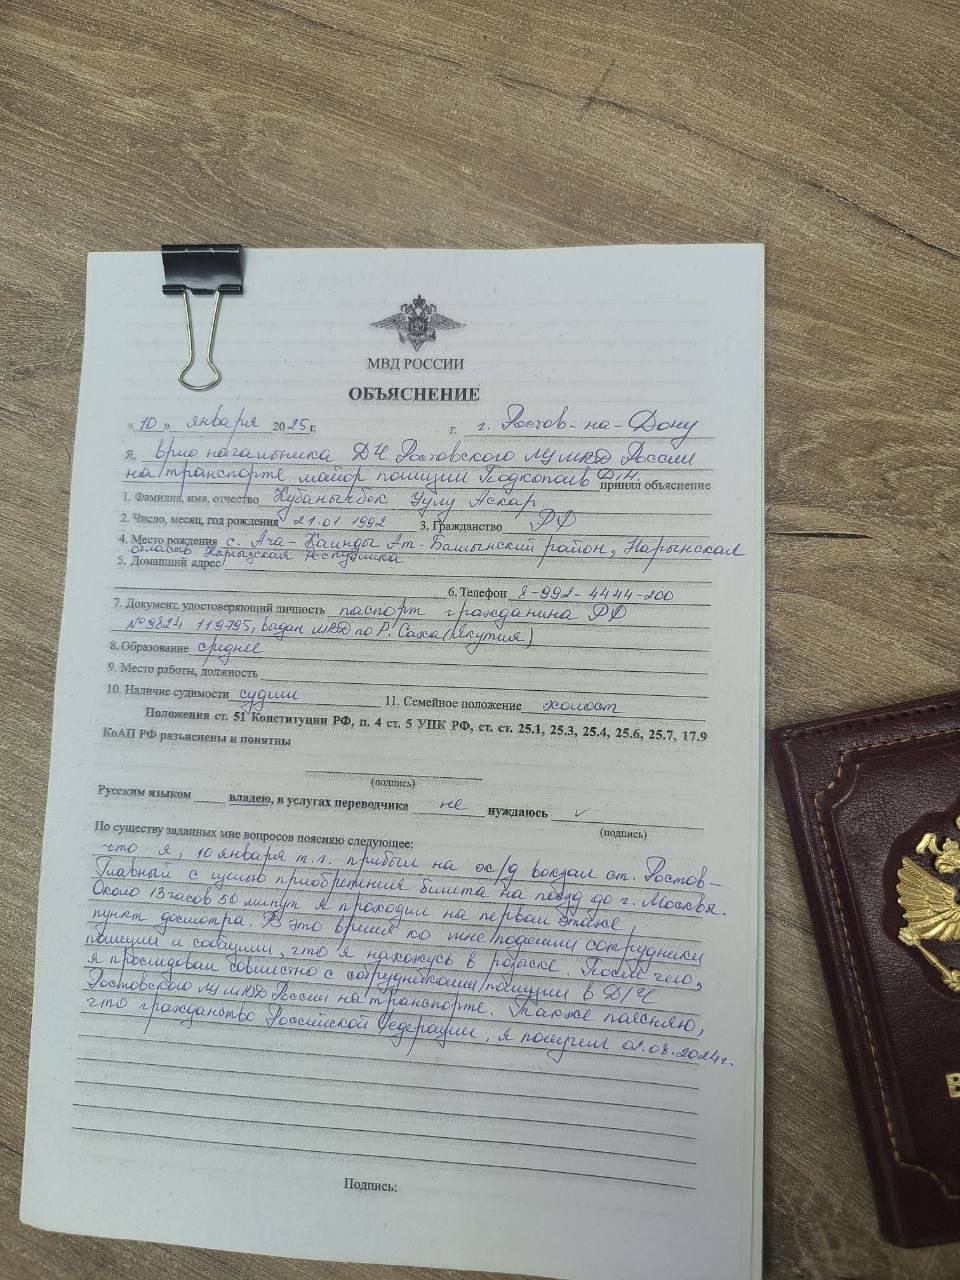 МВД РОССИИ
ОБЪЯСНЕНИЕ
«10» января 2025 г. г. г. Ростов-на-Дону
Я, врио начальника ДЧ Ростовского ЛУ МВД России
на транспорте майор полиции Подкопаев Д.Н. принял объяснение
1. Фамилия, имя, отчество Кубанычбек Уулу Аскар
2. Число, месяц, год рождения 21.01.1992 3. Гражданство РФ
4. Место рождения с. Ача-Каинды Ат-Башынский район, Нарынская
область Кыргызская Республика
5. Домашний адрес
6. Телефон 8-992-4444-200
7. Документ, удостоверяющий личность паспорт гражданина РФ
№9824 119795, выдан МВД по Р. Саха (Якутия)
8. Образование среднее
9. Место работы, должность
10. Наличие судимости судим 11. Семейное положение холост
Положения ст. 51 Конституции РФ, п. 4 ст. 5 УПК РФ, ст. ст. 25.1, 25.3, 25.4, 25.6, 25.7, 17.9
КоАП РФ разъяснены и понятны
(подпись)
Русским языком владею, в услугах переводчика не нуждаюсь ✓
(подпись)
По существу заданных мне вопросов поясняю следующее:
что я, 10 января т.г. прибыл на ж/д вокзал ст. Ростов-
Главный с целью приобретения билета на поезд до г. Москвы.
Около 13 часов 50 минут я проходил на первом этаже
пункт досмотра. В это время ко мне подошли сотрудники
полиции и сообщили, что я нахожусь в розыске. После чего,
я проследовал совместно с сотрудниками полиции в Д/Ч
Ростовского ЛУ МВД России на транспорте. Также поясняю,
что гражданство Российской Федерации, я получил 02.08.2024г.
Подпись: